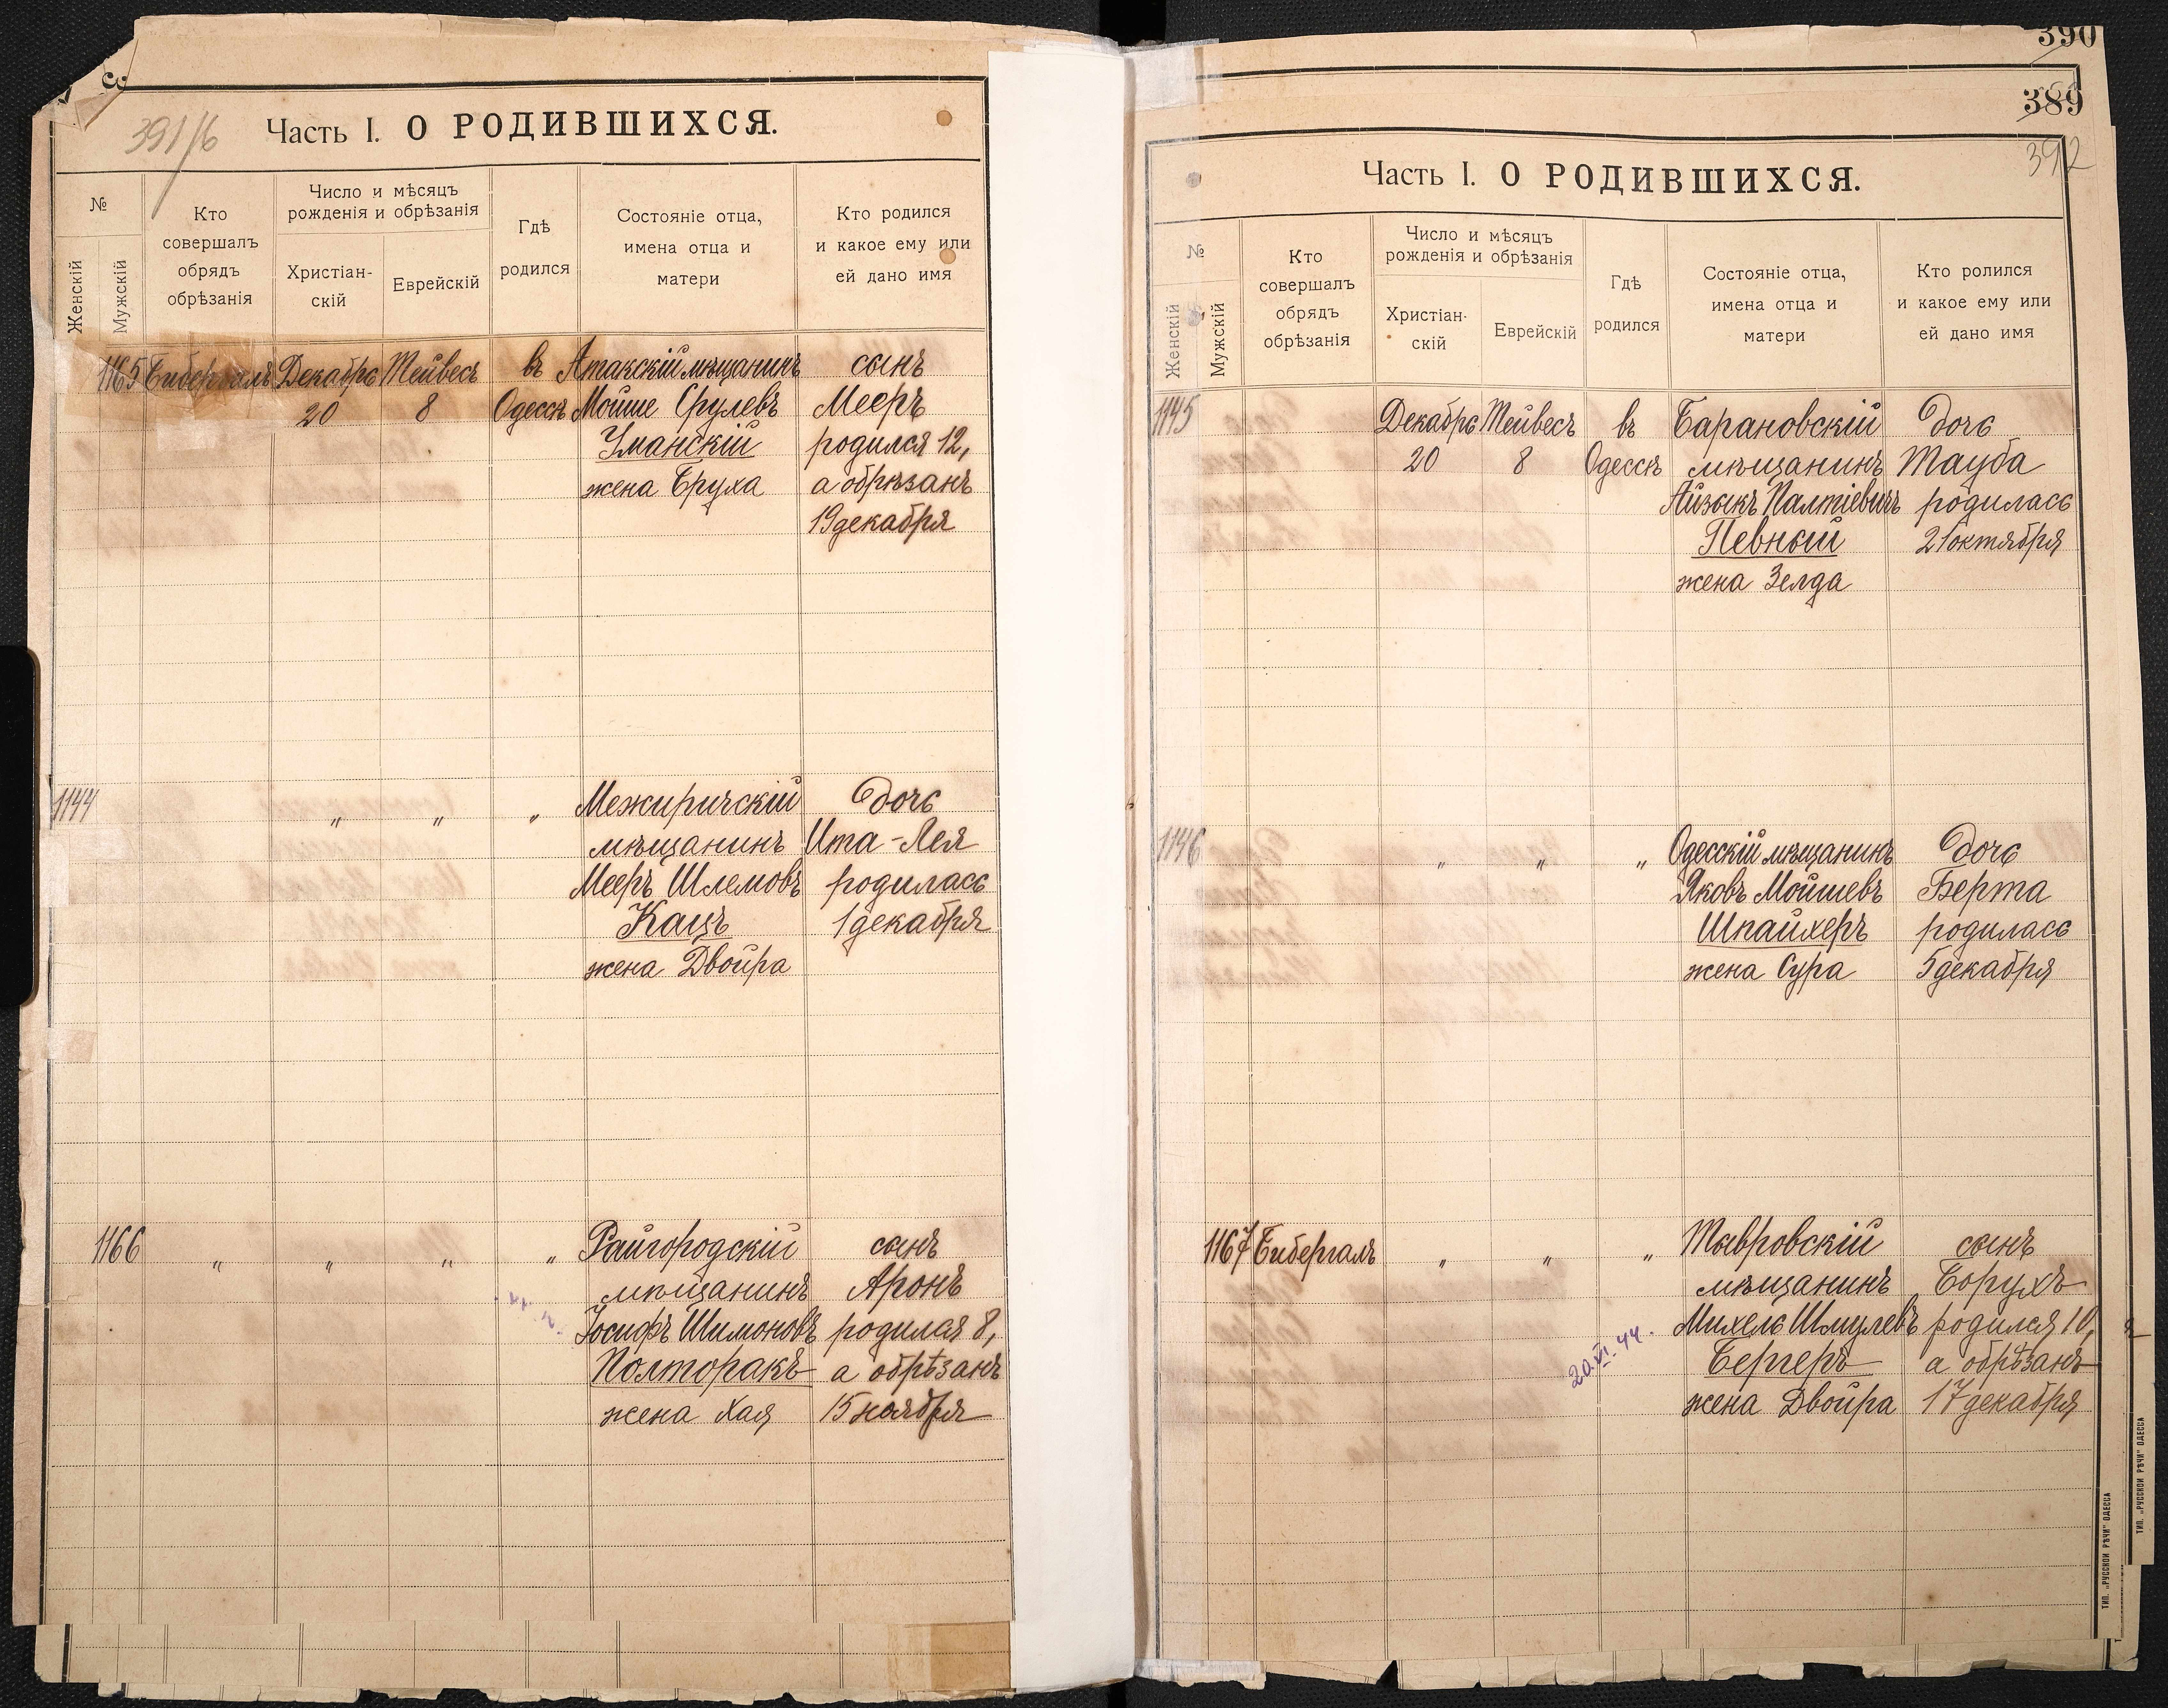 391/б
Часть I. О РОДИВШИХСЯ.
№
Женскій
Мужскій
Кто
совершалъ
обрядъ
обрѣзанія
Число и мѣсяцъ
рожденія и обрѣзанія
Христіан-
скій
Еврейскій
Гдѣ
родился
Состояніе отца,
имена отца и
матери
Кто родился
и какое ему или
ей дано имя
1165 Бибергалъ Декабрь Тейвесъ въ Атакскій мѣщанинъ сынъ
20 8 Одессѣ Мойше Срулевъ Мееръ
Уманскій родился 12,
жена Бруха а обрѣзанъ
19 декабря
1144 " " " Межиричскій дочь
мѣщанинъ Ита-Лея
Мееръ Шлемовъ родилась
Кацъ 1 декабря
жена Двойра
1166 " " " " Райгородскій сынъ
мѣщанинъ Аронъ
Іосифъ Шимоновъ родился 8,
Полторакъ а обрѣзанъ
жена Хая 15 ноября
390
389
392
Часть I. О РОДИВШИХСЯ.
№
Женскій
Мужскій
Кто
совершалъ
обрядъ
обрѣзанія
Число и мѣсяцъ
рожденія и обрѣзанія
Христіан-
скій
Еврейскій
Гдѣ
родился
Состояніе отца,
имена отца и
матери
Кто ролился
и какое ему или
ей дано имя
1145 Декабрь Тейвесъ въ Барановскій дочь
20 8 Одессѣ мѣщанинъ Тауба
Айзыкъ Палтіевичъ родилась
Певный 21 октября
жена Зелда
1146 " " " Одесскій мѣщанинъ дочь
Яковъ Мойшевъ Берта
Шпайхеръ родилась
жена Сура 5 декабря
1167 Бибергалъ " " " Тывровскій сынъ
мѣщанинъ Борухъ
Михель Шмулевъ родился 10,
20.VI.44. Бергеръ а обрѣзанъ
жена Двойра 17 декабря
ТИП. „РУССКОЙ РѢЧИ" ОДЕССА
ТИП. „РУССКОЙ РѢЧИ" ОДЕССА